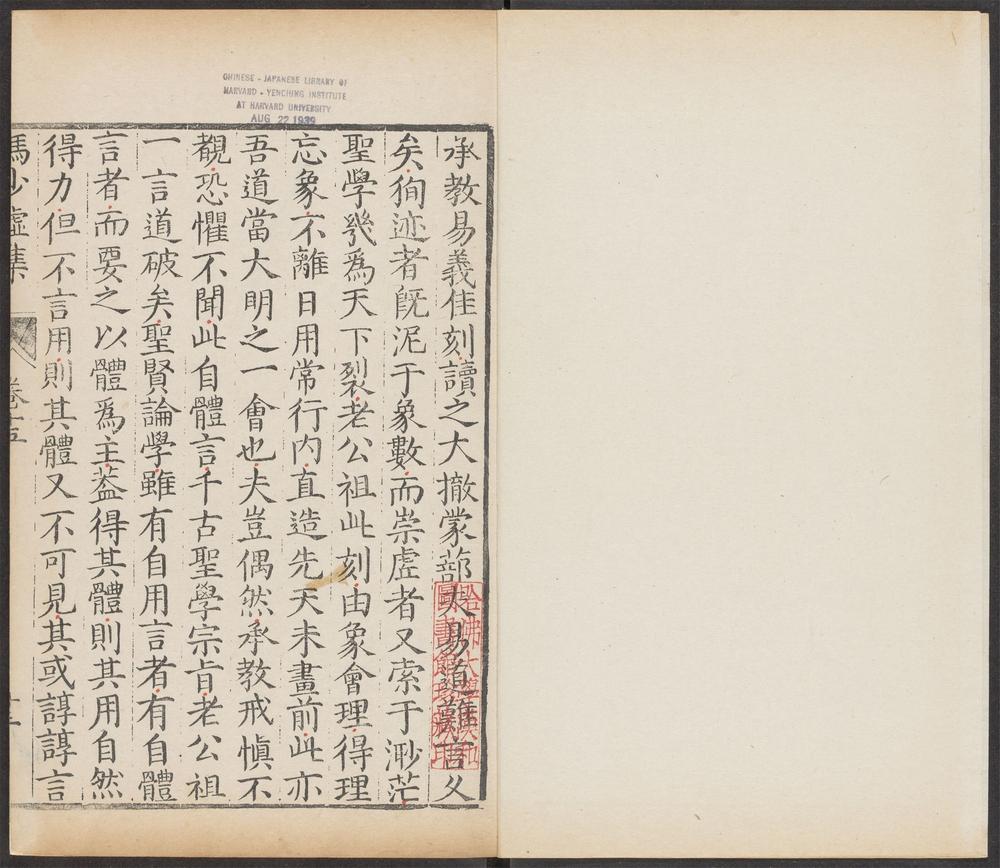 CHINESE - JAPANESE LIBRARY OF
HARVARD - YENCHING INSTITUTE
AT HARVARD UNIVERSITY
AUG 22 1939
承教易義佳刻讀之大撤蒙蔀夫易道難言乆
矣狥迹者旣泥于象數而崇虛者又索于渺茫
聖學幾爲天下裂老公祖此刻由象會理得理
忘象不離日用常行内直造先天未畫前此亦
吾道當大明之一會也夫豈偶然承教戒愼不
覩恐懼不聞此自體言千古聖學宗旨老公祖
一言道破矣聖賢論學雖有自用言者有自體
言者而要之以體爲主葢得其體則其用自然
得力但不言用則其體又不可見其或諄諄言
馮少虛集
卷十五
哈佛大學漢和
圖書館珍藏印